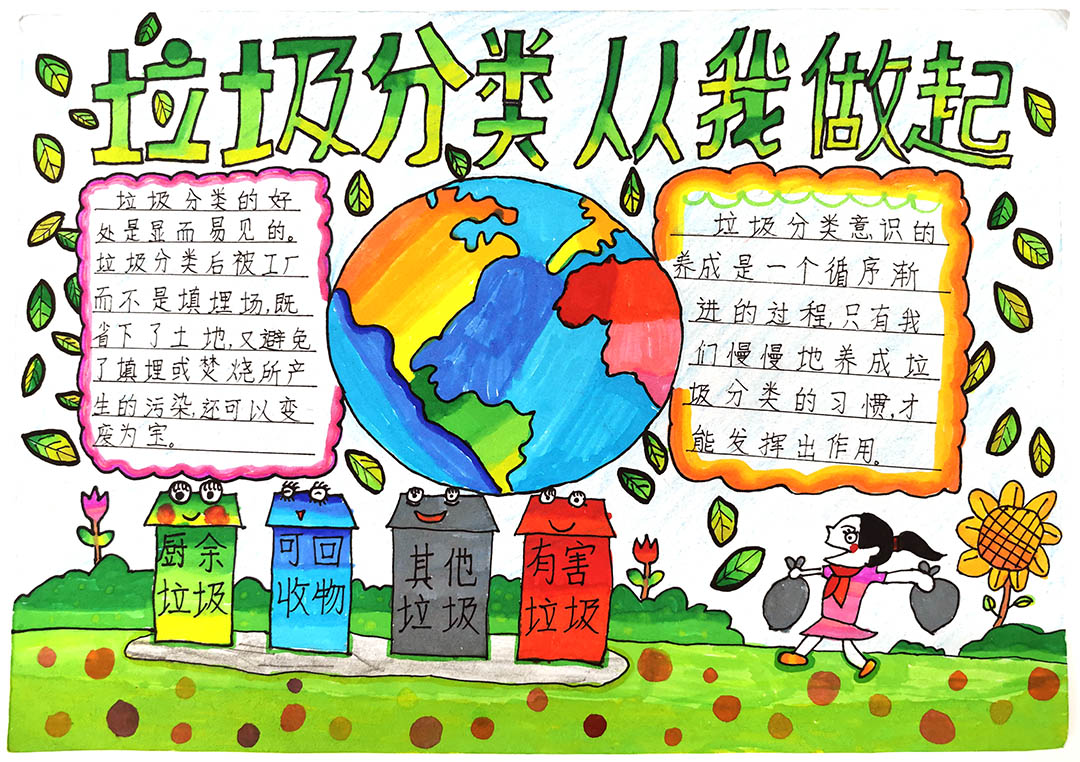 垃圾分类从我做起
垃圾分类的好
处是显而易见的。
垃圾分类后被工厂
而不是填埋场,既
省下了土地,又避免
了填埋或焚烧所产
生的污染,还可以变
废为宝。
垃圾分类意识的
养成是一个循序渐
进的过程,只有我
们慢慢地养成垃
圾分类的习惯,才
能发挥出作用。
厨余
垃圾
可回
收物
其他
垃圾
有害
垃圾